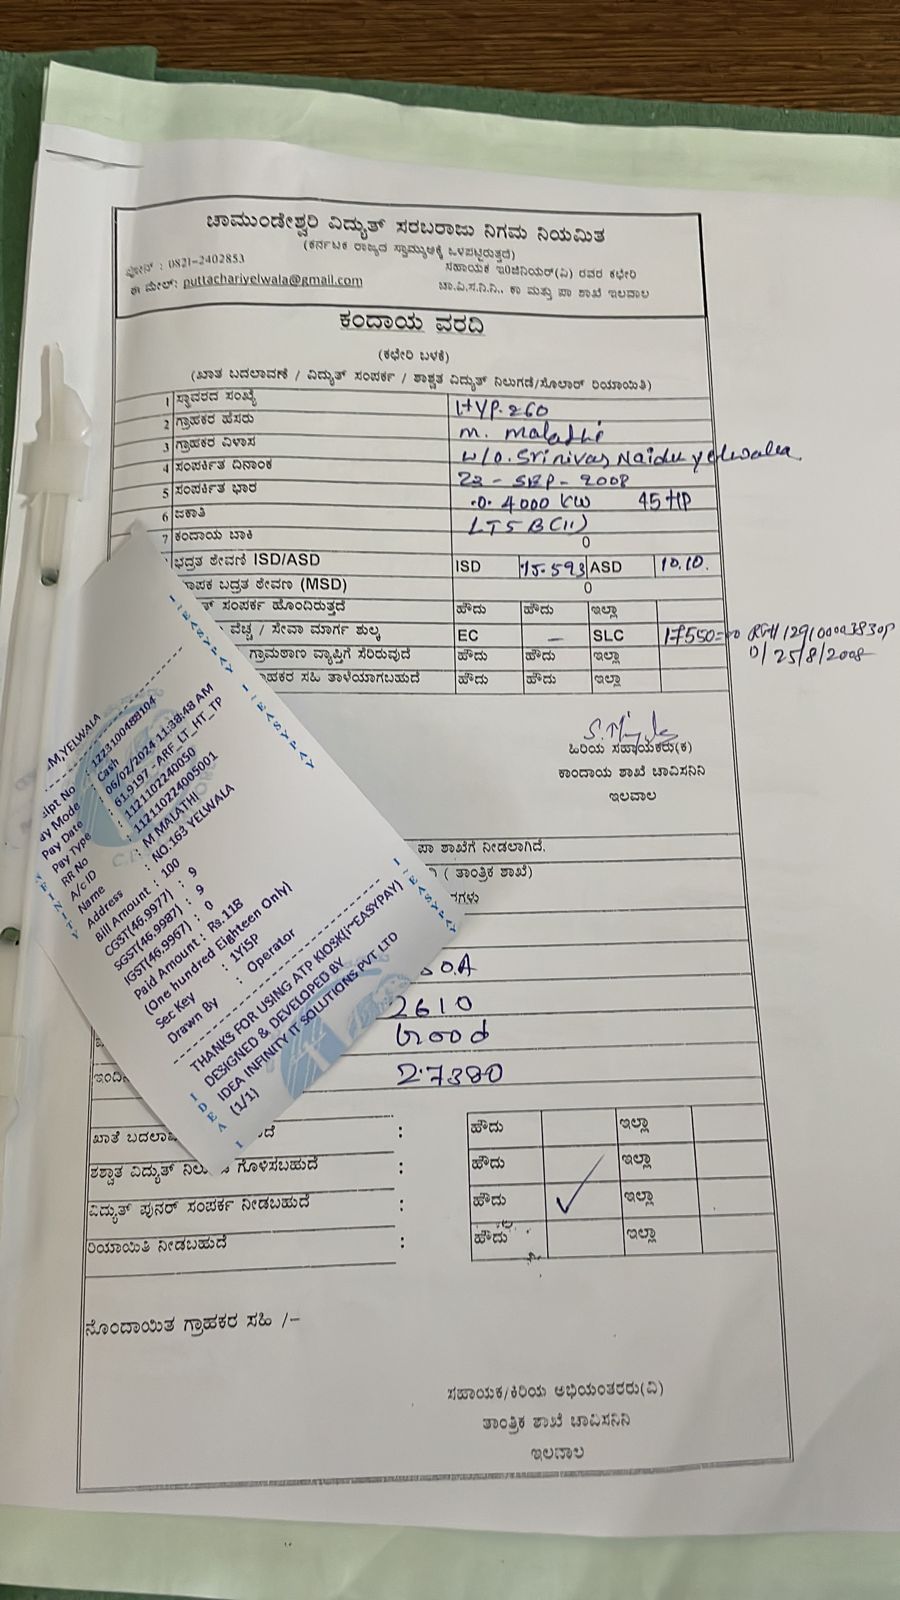 ಚಾಮುಂಡೇಶ್ವರಿ ವಿದ್ಯುತ್ ಸರಬರಾಜು ನಿಗಮ ನಿಯಮಿತ
(ಕರ್ನಾಟಕ ರಾಜ್ಯದ ಸ್ವಾಮ್ಯಕ್ಕೆ ಒಳಪಟ್ಟಿರುತ್ತದೆ)
ಫೋನ್ : 0821-2402853
ಸಹಾಯಕ ಇಂಜಿನಿಯರ್(ವಿ) ರವರ ಕಛೇರಿ
ಈ ಮೇಲ್: puttachariyelwala@gmail.com
ಚಾ.ವಿ.ಸ.ನಿ.ನಿ., ಕಾ ಮತ್ತು ಪಾ ಶಾಖೆ ಇಲವಾಲ
ಕಂದಾಯ ವರದಿ
(ಕಛೇರಿ ಬಳಕೆ)
(ಖಾತ ಬದಲಾವಣೆ / ವಿದ್ಯುತ್ ಸಂಪರ್ಕ / ಶಾಶ್ವತ ವಿದ್ಯುತ್ ನಿಲುಗಡೆ/ಸೋಲಾರ್ ರಿಯಾಯಿತಿ)
1 ಸ್ಥಾವರದ ಸಂಖ್ಯೆ HYP.260
2 ಗ್ರಾಹಕರ ಹೆಸರು m. malathi
3 ಗ್ರಾಹಕರ ವಿಳಾಸ w/o. Srinivas Naidu yelwala
4 ಸಂಪರ್ಕಿತ ದಿನಾಂಕ 23 - SEP - 2008
5 ಸಂಪರ್ಕಿತ ಭಾರ 0.4000 KW 45 HP
6 ಜಕಾತಿ LT5 B(ii)
7 ಕಂದಾಯ ಬಾಕಿ 0
ಭದ್ರತ ಠೇವಣಿ ISD/ASD ISD 15.593 ASD 10.10.
ಮಾಪಕ ಬದ್ರತ ಠೇವಣಿ (MSD) 0
ಸಂಪರ್ಕ ಹೊಂದಿರುತ್ತದೆ ಹೌದು ಹೌದು ಇಲ್ಲಾ
ವೆಚ್ಚ / ಸೇವಾ ಮಾರ್ಗ ಶುಲ್ಕ EC — SLC 17550=00
D/ 25/8/2008
ಗ್ರಾಮಠಾಣ ವ್ಯಾಪ್ತಿಗೆ ಸೆರಿರುವುದೆ ಹೌದು ಹೌದು ಇಲ್ಲಾ
ಗ್ರಾಹಕರ ಸಹಿ ತಾಳೆಯಾಗಬಹುದೆ ಹೌದು ಹೌದು ಇಲ್ಲಾ
ಹಿರಿಯ ಸಹಾಯಕರು(ಕ)
ಕಾಂದಾಯ ಶಾಖೆ ಚಾವಿಸನಿನಿ
ಇಲವಾಲ
ಪಾ ಶಾಖೆಗೆ ನೀಡಲಾಗಿದೆ.
( ತಾಂತ್ರಿಕ ಶಾಖೆ)
2610
Good
2.7380
M,YELWALA
Receipt No : 1223100488104
Pay Mode : Cash
Pay Date : 06/02/2024 11:38:48 AM
Pay Type : 61.9197 - ARF_LT_HT_TP
RR No : 1121102240050
A/c ID : 112110224005001
Name : M MALATHI
Address : NO.163 YELWALA
Bill Amount : 100
CGST(46.9977) : 9
SGST(46.9987) : 9
IGST(46.9967) : 0
Paid Amount : Rs.118
(One hundred Eighteen Only)
Sec Key : 1YI5P
Drawn By : Operator
THANKS FOR USING ATP KIOSK(i~EASYPAY)
DESIGNED & DEVELOPED BY
IDEA INFINITY IT SOLUTIONS PVT LTD
(1/1)
ಖಾತೆ ಬದಲಾವಣೆ : ಹೌದು ಇಲ್ಲಾ
ಶಶ್ವಾತ ವಿದ್ಯುತ್ ನಿಲುಗಡೆ ಗೊಳಿಸಬಹುದೆ : ಹೌದು ಇಲ್ಲಾ
ವಿದ್ಯುತ್ ಪುನರ್ ಸಂಪರ್ಕ ನೀಡಬಹುದೆ : ಹೌದು ✓ ಇಲ್ಲಾ
ರಿಯಾಯಿತಿ ನೀಡಬಹುದೆ : ಹೌದು ಇಲ್ಲಾ
ನೊಂದಾಯಿತ ಗ್ರಾಹಕರ ಸಹಿ /-
ಸಹಾಯಕ/ಕಿರಿಯ ಅಭಿಯಂತರರು(ವಿ)
ತಾಂತ್ರಿಕ ಶಾಖೆ ಚಾವಿಸನಿನಿ
ಇಲವಾಲ